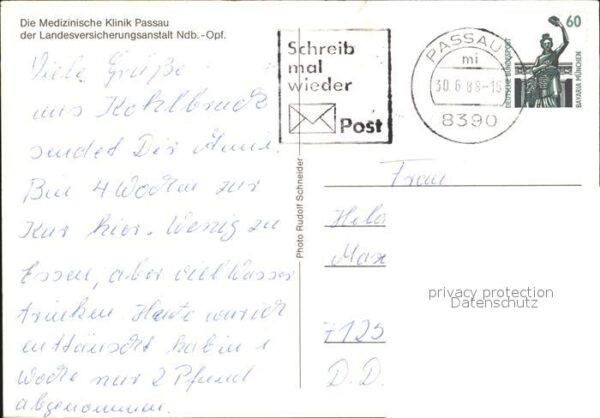 Die Medizinische Klinik Passau
der Landesversicherungsanstalt Ndb.-Opf.
Viele Grüße
aus Kohlbruck
sendet Dir
Bin 4 Wochen zur
Kur hier. Wenig zu
Essen, aber viel Wasser
trinken. Heute war ich
enttäuscht hab in 1
Woche nur 2 Pfund
abgenommen.
Photo Rudolf Schneider
Schreib
mal
wieder
Post
PASSAU
mi
30.6.88-15
8390
60
DEUTSCHE BUNDESPOST
BAVARIA MÜNCHEN
Frau
Max
privacy protection
Datenschutz
7125
D. D.